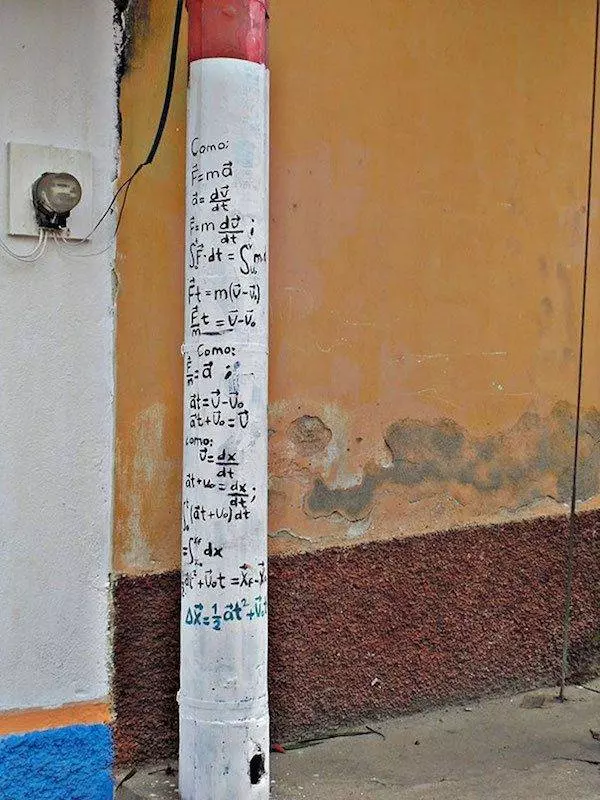 Como:
F⃗=ma⃗
a⃗= dv⃗/dt
F⃗=m dv⃗/dt ;
∫₀ᵗ F⃗·dt = ∫ m
F⃗t = m(v⃗-v⃗₀)
F⃗/m t = v⃗-v⃗₀
Como:
F⃗/m = a⃗ ;
a⃗t=v⃗-v⃗₀
a⃗t+v⃗₀=v⃗
como:
v⃗= dx⃗/dt
a⃗t+v₀= dx⃗/dt ;
∫₀ᵗ(a⃗t+v⃗₀)dt
=∫ dx
a⃗t²+v⃗₀t =x⃗F-x⃗
Δx⃗=½a⃗t²+v⃗